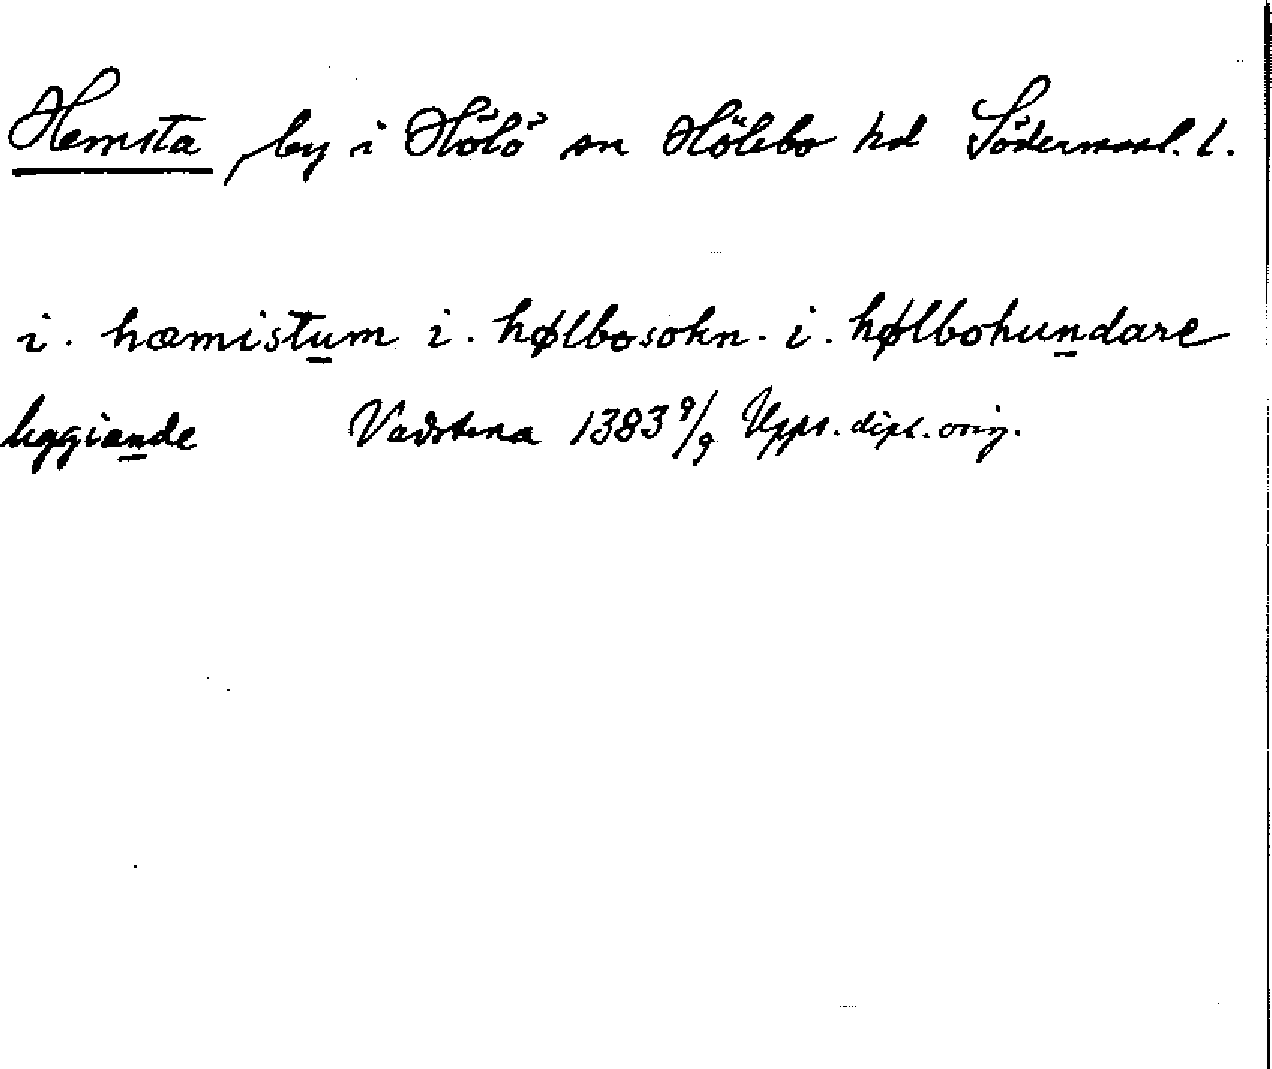 Hemsta, by i Hölö sn Hölebo hd Södermanl. l.
i. hæmistum i. hølbosokn. i. hølbohundare
liggiande Vadstena 1383 9/9 Upps. dipl. orig.